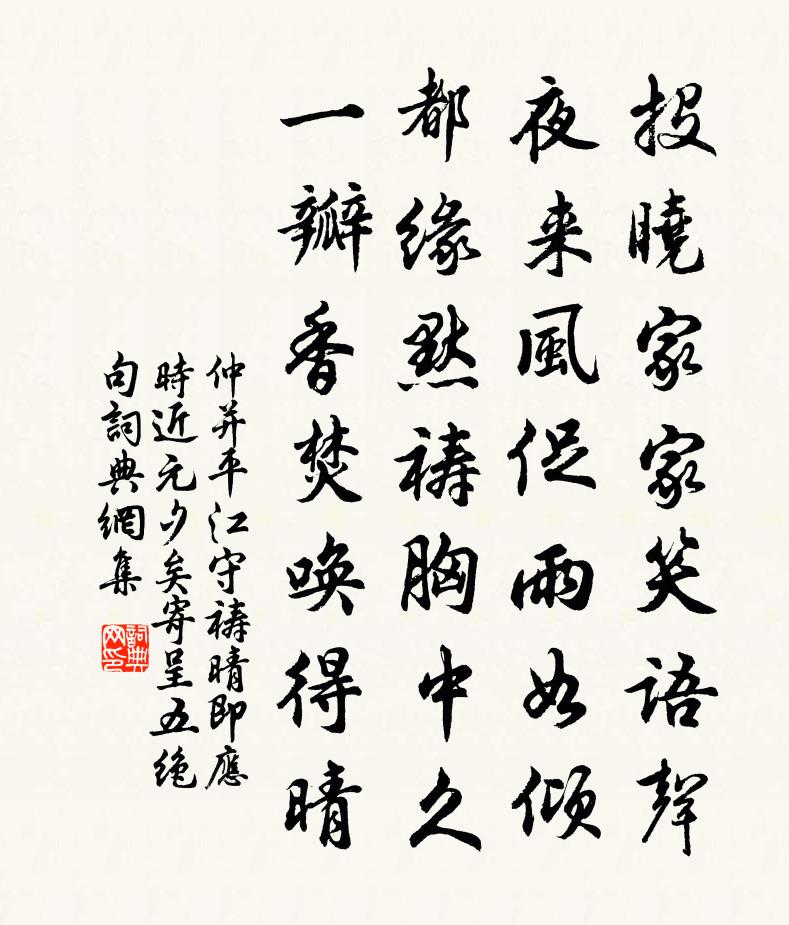 投曉家家笑語聲
夜来風促雨如傾
都緣默禱胸中久
一瓣香焚喚得晴
仲并平江守禱晴即應
時近元夕矣寄呈五絶
句詞典網集
詞典網印